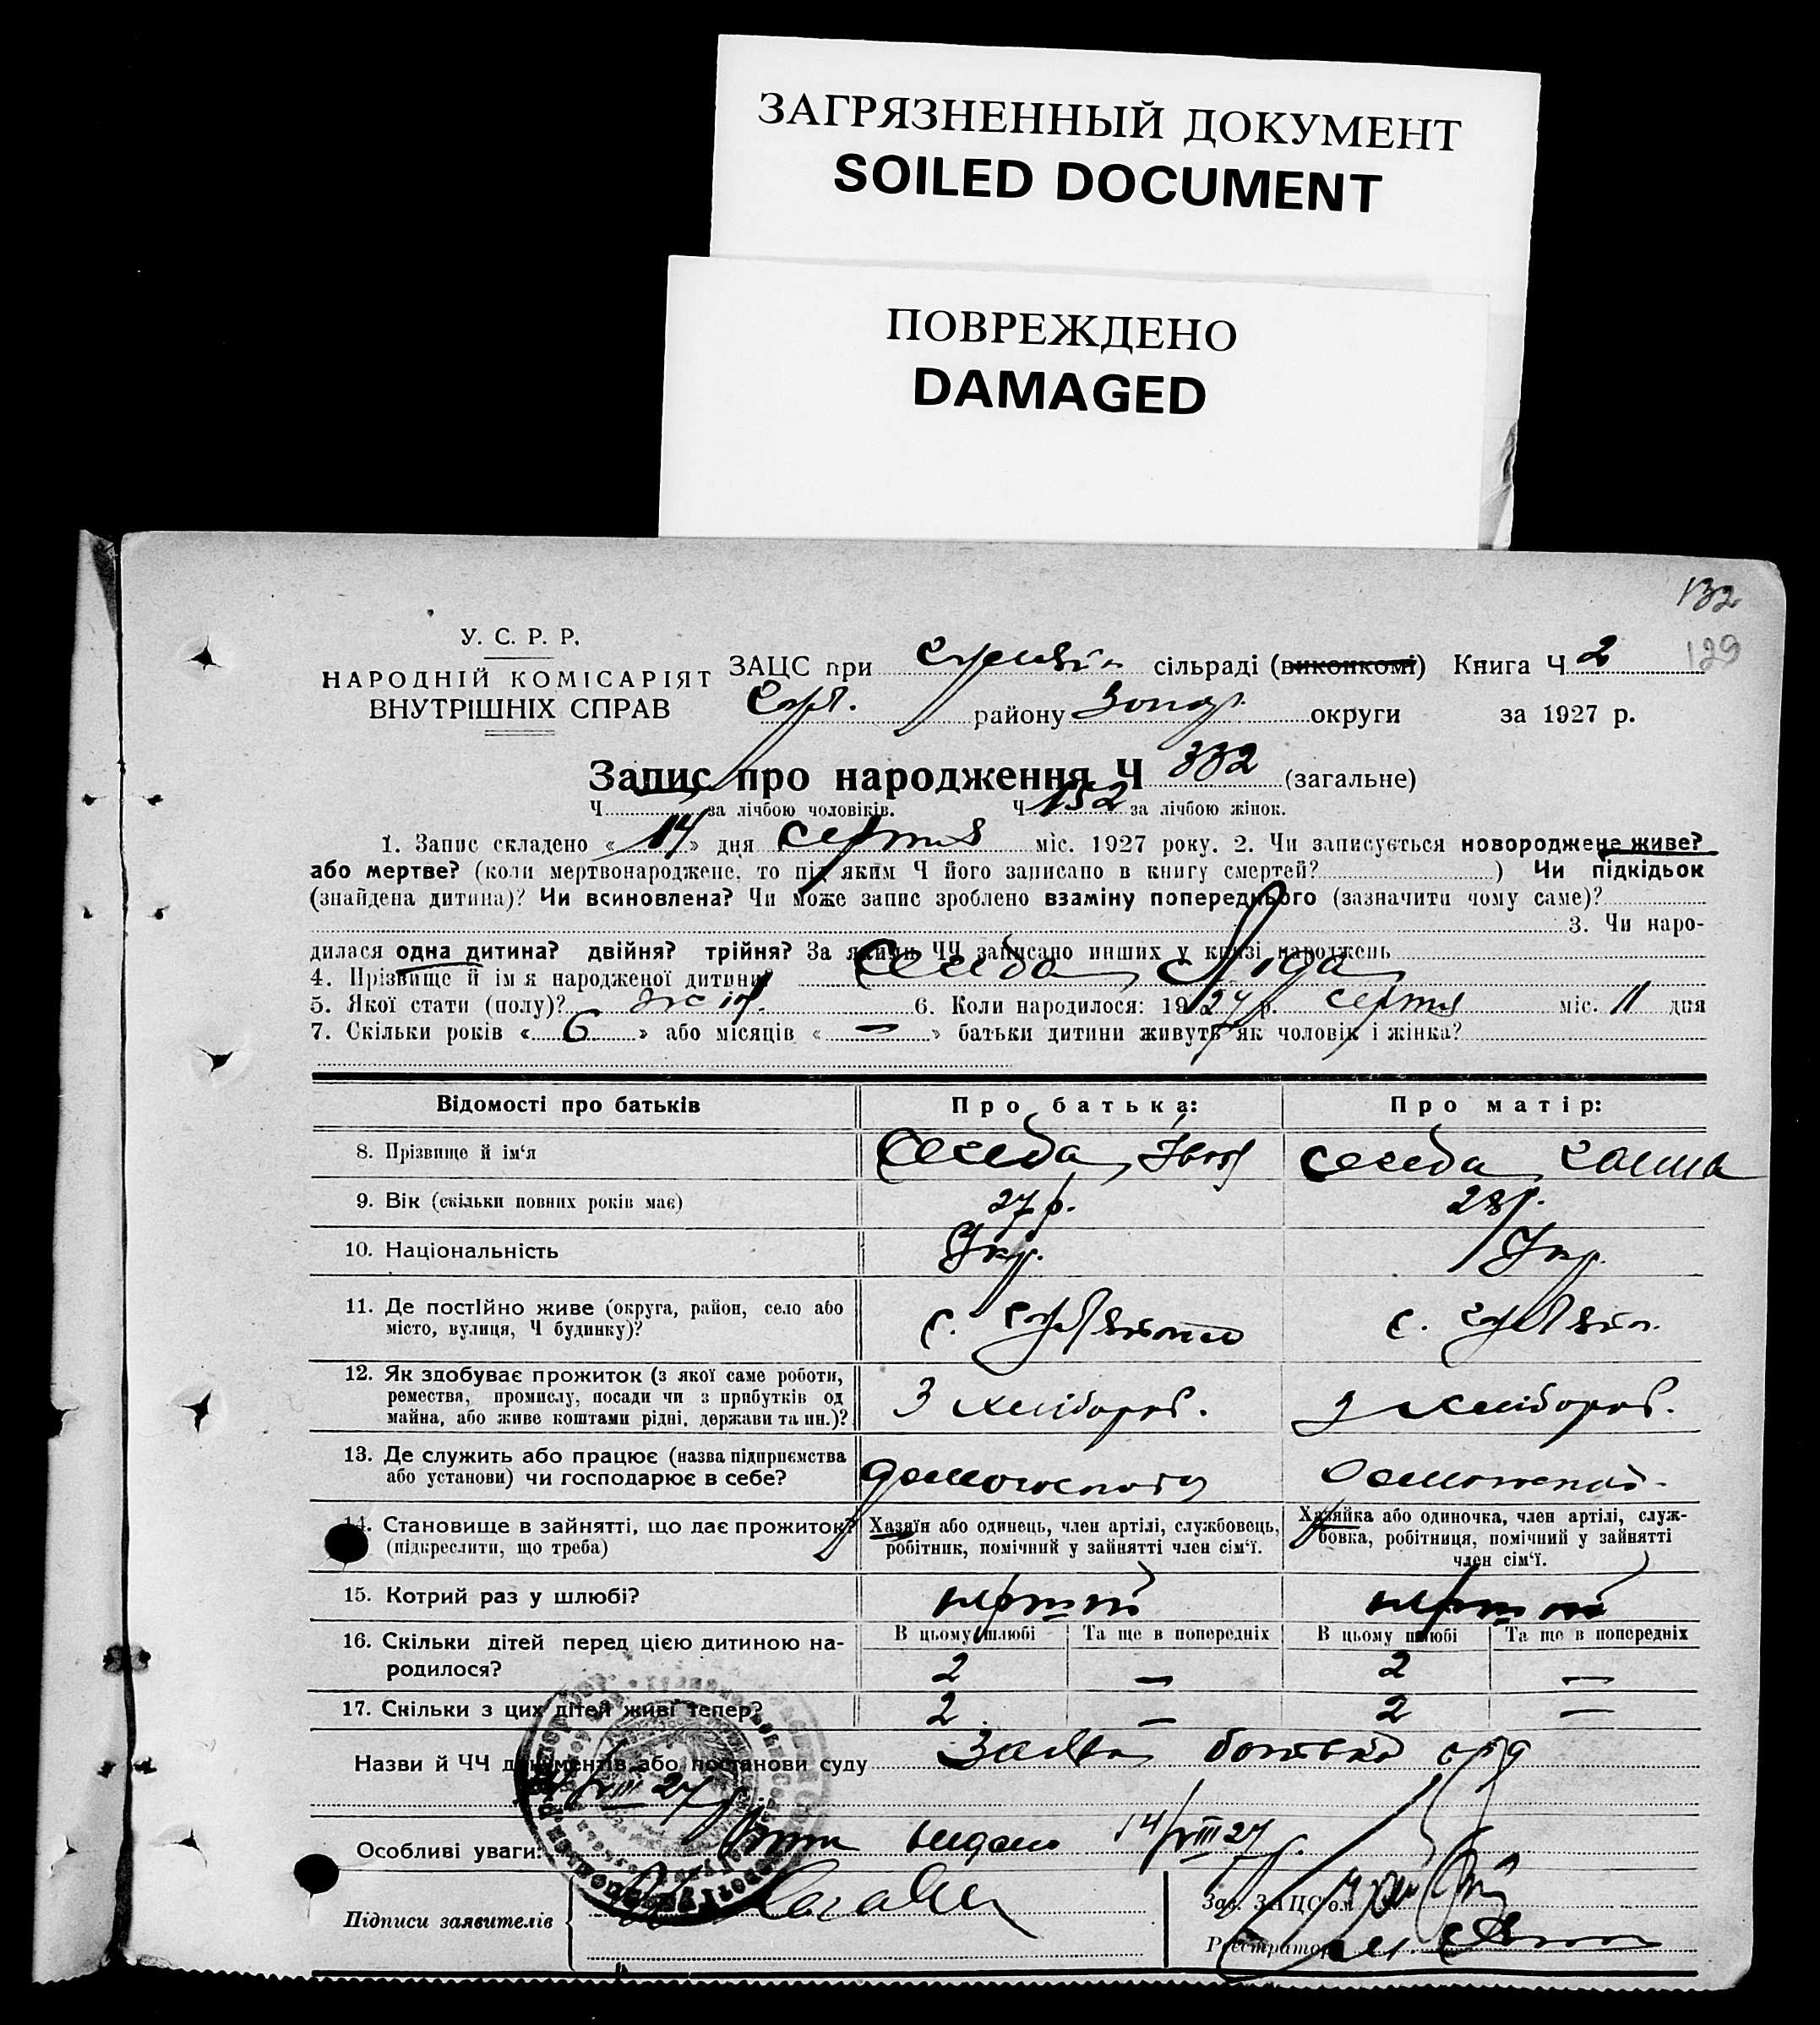 ЗАГРЯЗНЕННЫЙ ДОКУМЕНТ
SOILED DOCUMENT
ПОВРЕЖДЕНО
DAMAGED
132
129
У. С. Р. Р.
НАРОДНІЙ КОМІСАРІЯТ
ВНУТРІШНІХ СПРАВ
ЗАЦС при сільраді (виконкомі) Книга Ч 2
району округи за 1927 р.
Запис про народження Ч 332 (загальне)
Ч за лічбою чоловіків. Ч 152 за лічбою жінок.
1. Запис складено « 14 » дня серпня міс. 1927 року. 2. Чи записується новороджене живе?
або мертве? (коли мертвонароджене, то під яким Ч його записано в книгу смертей? ) Чи підкідьок
(знайдена дитина)? Чи всиновлена? Чи може запис зроблено взаміну попереднього (зазначити чому саме)?
3. Чи наро-
дилася одна дитина? двійня? трійня? За якими ЧЧ записано инших у книзі народжень
4. Прізвище й ім я народженої дитини? Ліда
5. Якої стати (полу)? жіноч. 6. Коли народилося: 1927 р. серпня міс. 11 дня
7. Скільки років « 6 » або місяців « — » батьки дитини живуть як чоловік і жінка?
Відомості про батьків
Про батька:
Про матір:
8. Прізвище й ім‘я Іван Ганна
9. Вік (скільки повних років має) 27 р. 28 р.
10. Національність Укр. Укр.
11. Де постІйно живе (округа, район, село або
місто, вулиця, Ч будинку)? с. с.
12. Як здобуває прожиток (з якої саме роботи,
ремества, промислу, посади чи з прибутків од
майна, або живе коштами рідні, держави та ин.)? З хлібороб. З хлібороб.
13. Де служить або працює (назва підприємства
або установи) чи господарює в себе?
14. Становище в зайнятті, що дає прожиток?
(підкреслити, що треба)
Хазяїн або одинець, член артілі, службовець,
робітник, помічний у зайнятті член сім‘ї.
Хазяйка або одиночка, член артілі, служ-
бовка, робітниця, помічний у зайнятті
член сім‘ї.
15. Котрий раз у шлюбі? перший перший
16. Скільки дітей перед цією дитиною на-
родилося?
В цьому шлюбі Та ще в попередніх В цьому шлюбі Та ще в попередніх
2 — 2 —
17. Скільки з цих дітей живі тепер? 2 — 2 —
Назви й ЧЧ документів або постанови суду Заява батька
VIII 27
Особливі уваги: видано 14/VIII 27 р.
Підписи заявителів
Зав. ЗАЦС‘ом
Реєстратор